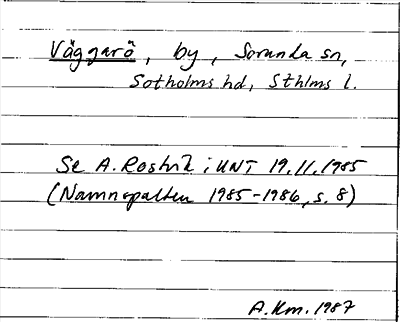 Väggarö, by, Sorunda sn,
Sotholms hd, Sthlms l.
Se A. Rostvik i UNT 19.11.1985
(Namnspalten 1985-1986, s. 8)
A.Km. 1987